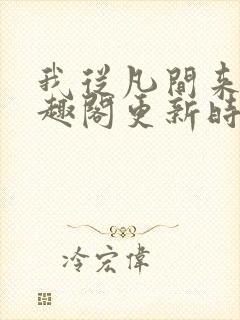 我從凡間来
趣閣更新時
冷宏偉